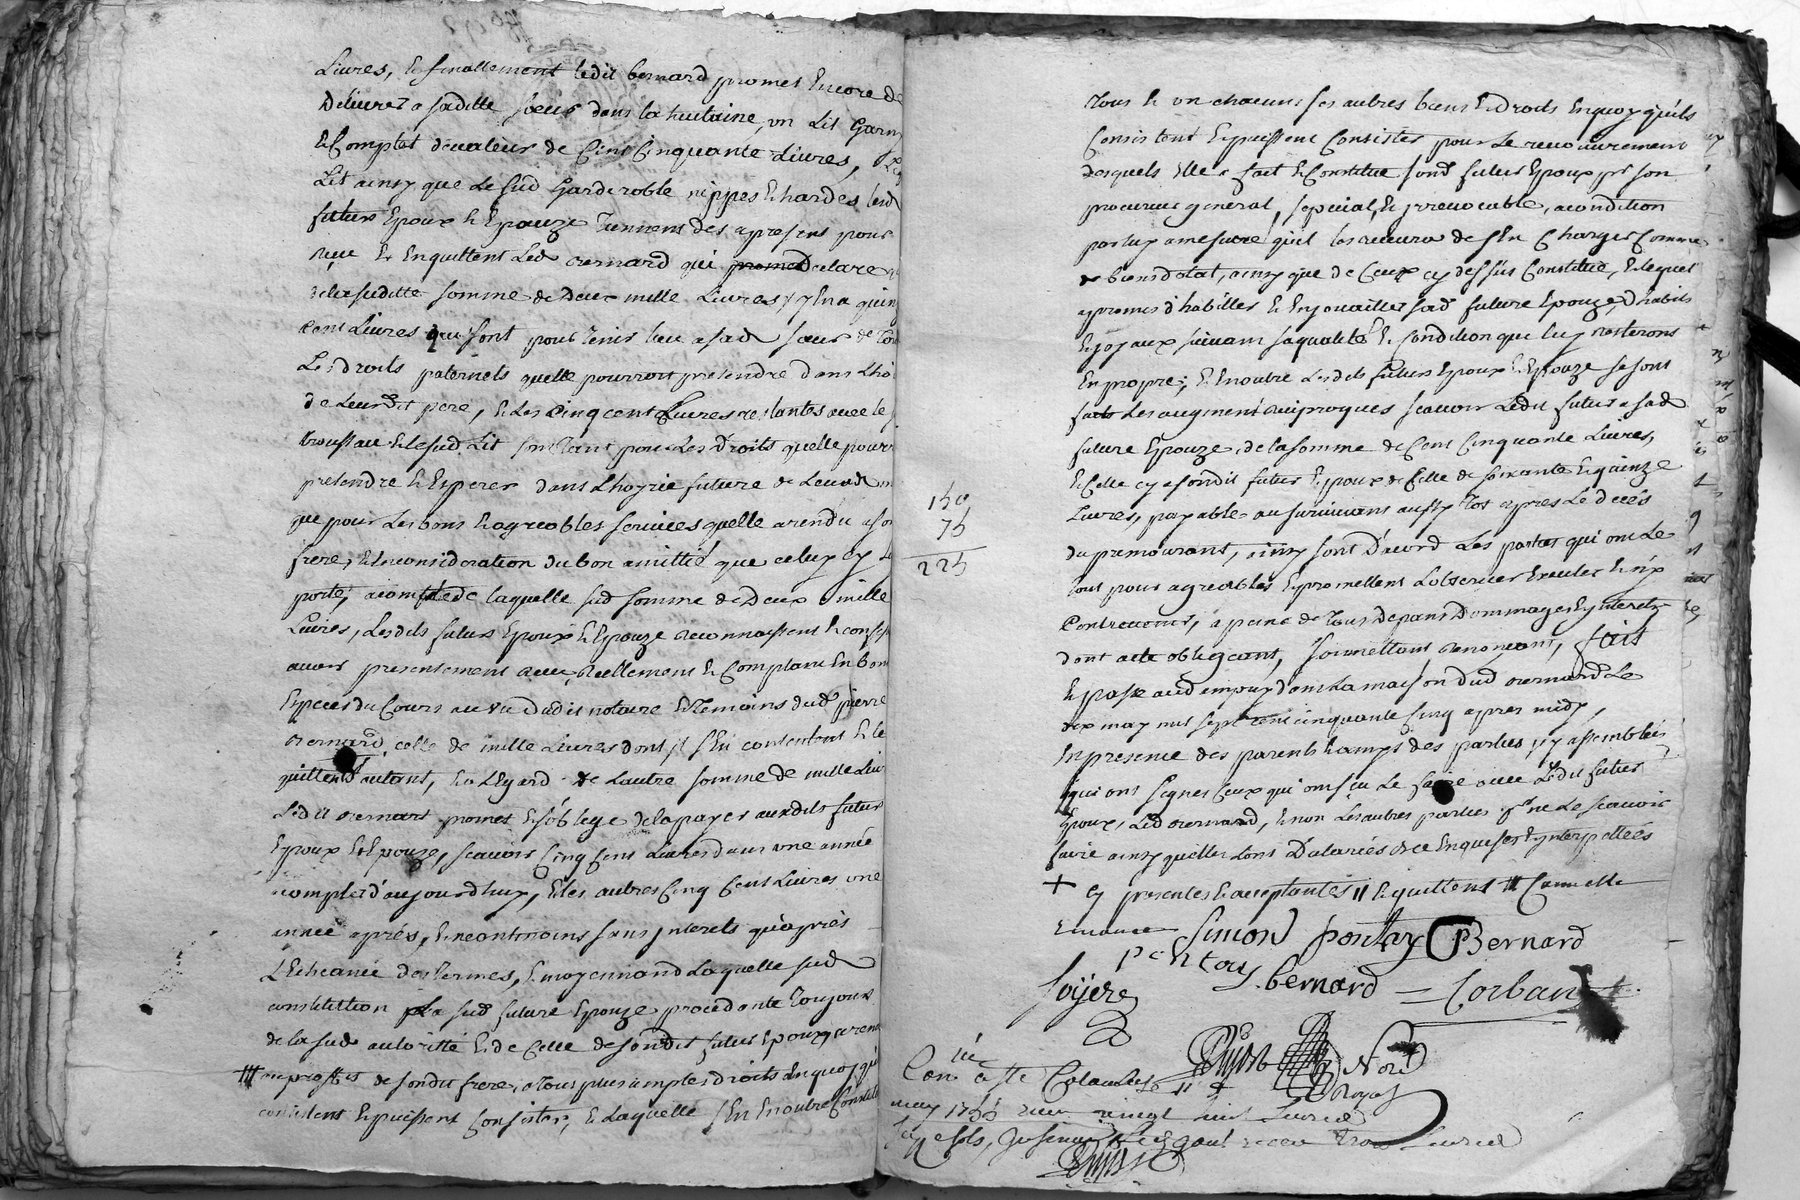 Livres, et finallement ledit bernard promet encore de
delivrer a sadite sœur dans la huitaine, un Lit Garny
et Complet de valeur de Cent Cinquante Livres,
Lit ainsy que le sud garderoble nippes et hardes lesd
futurs Epoux et Epouze tiennent des apresent pour
reçu et en quittent Led bernard qui declare
de la suditte somme de Deux mille Livres y en a quinze
Cent Livres qui sont pour tenir lieu a sad sœur de
Les droits paternels quelle pourroit pretendre dans Lho
de Leurdit pere, et Les Cinq cent Livres restantes avec le
trousseau et le sud Lit sont tant pour Les Droits quelle pourr
pretendre et Esperer dans Lhoyrie future de Leurd
que pour Les bons et agreables services quelle a rendu a son
frere, et en consideration du bon amittié que celuy cy Lé
porte, a compte de laquelle sud somme de Deux mille
Livres, Lesdits futurs Epoux et Epouze reconnoissent et confess
avoir presentement reçu, reellement et Comptant En bon
Especes du Cours au vu dudit notaire et temoins dud pierre
bernard, celle de mille Livres dont il s'En contentent et le
quittent d'autant, et a L'Egard de L'autre somme de mille Liv
Ledit bernard promet et s'oblige de la payer auxdits futurs
Epoux et Epouze, scavoir Cinq Cent Livres dans une année
complet d'aujourdhuy, et les autres Cinq Cent Livres une
année aprés, et neantmoins sans interets qu'aprés
L'Echeance des termes, et moyennant Laquelle sud
constitution la sud future Epouze procedante toujours
de la sud authoritté et de Celle de sondit futur Epoux
au proffit de sondit frere, a tous plus amples droits En quoy qu'i
consistent et puissent Consister, et Laquelle s'En En outre Constitue
tous et un chacuns ses autres biens et Droits En quoy qu'ils
Consistent et puissent Consister pour Le recouvrement
desquels Elle a fait et Constitue sond futur Epoux pr son
procureur general, special, et irrevocable, a condition
par luy a mesure qu'il les recevra de s'En Charger Comme
bien dotal, ainsy que de Ceux cy dessus Constitué, et lequel
a promis d'habiller et Enjouailler sad future Epouze, d'habits
et joyaux suivant sa qualité et Condition que luy resterons
En propre; et En outre Lesdits futurs Epoux et Epouze se sont
faits Les augment reciproques scavoir Ledit futur a sad
future Epouze, de la somme de Cent Cinquante Livres,
et Celle cy a sondit futur Epoux de Celle de soixante et quinze
Livres, payable au survivant aussy tot apres Le decés
du premourant, ainsy sont D'acord Les parties qui ont Le
tout pour agreables et promettent L'observer Executer et n'y
Contrevenir, a peine de tous Depans Dommages et interets
dont acte obligeant, soumettant renonçant, fait
et passé aud dans La maison dud bernard Le
dix may mil sept cent cinquante Cinq apres midy,
En presence des parents et amys des parties, y assemblés
qui ont signes Ceux qui ont sçu Le faire avec Ledit futur
Epoux, Led bernard, et non Les autres parties pr ne Le scavoir
faire ainsy quelles l'ont Declarées de ce Enquises et interpellées
+ cy presentes et acceptantes ıı et quittent ııı
150
75
225
Simon pontay PBernard
bernard = Corban
Soyere
Guyot Nore
Royal
may 1755 reçu vingt huit Livres